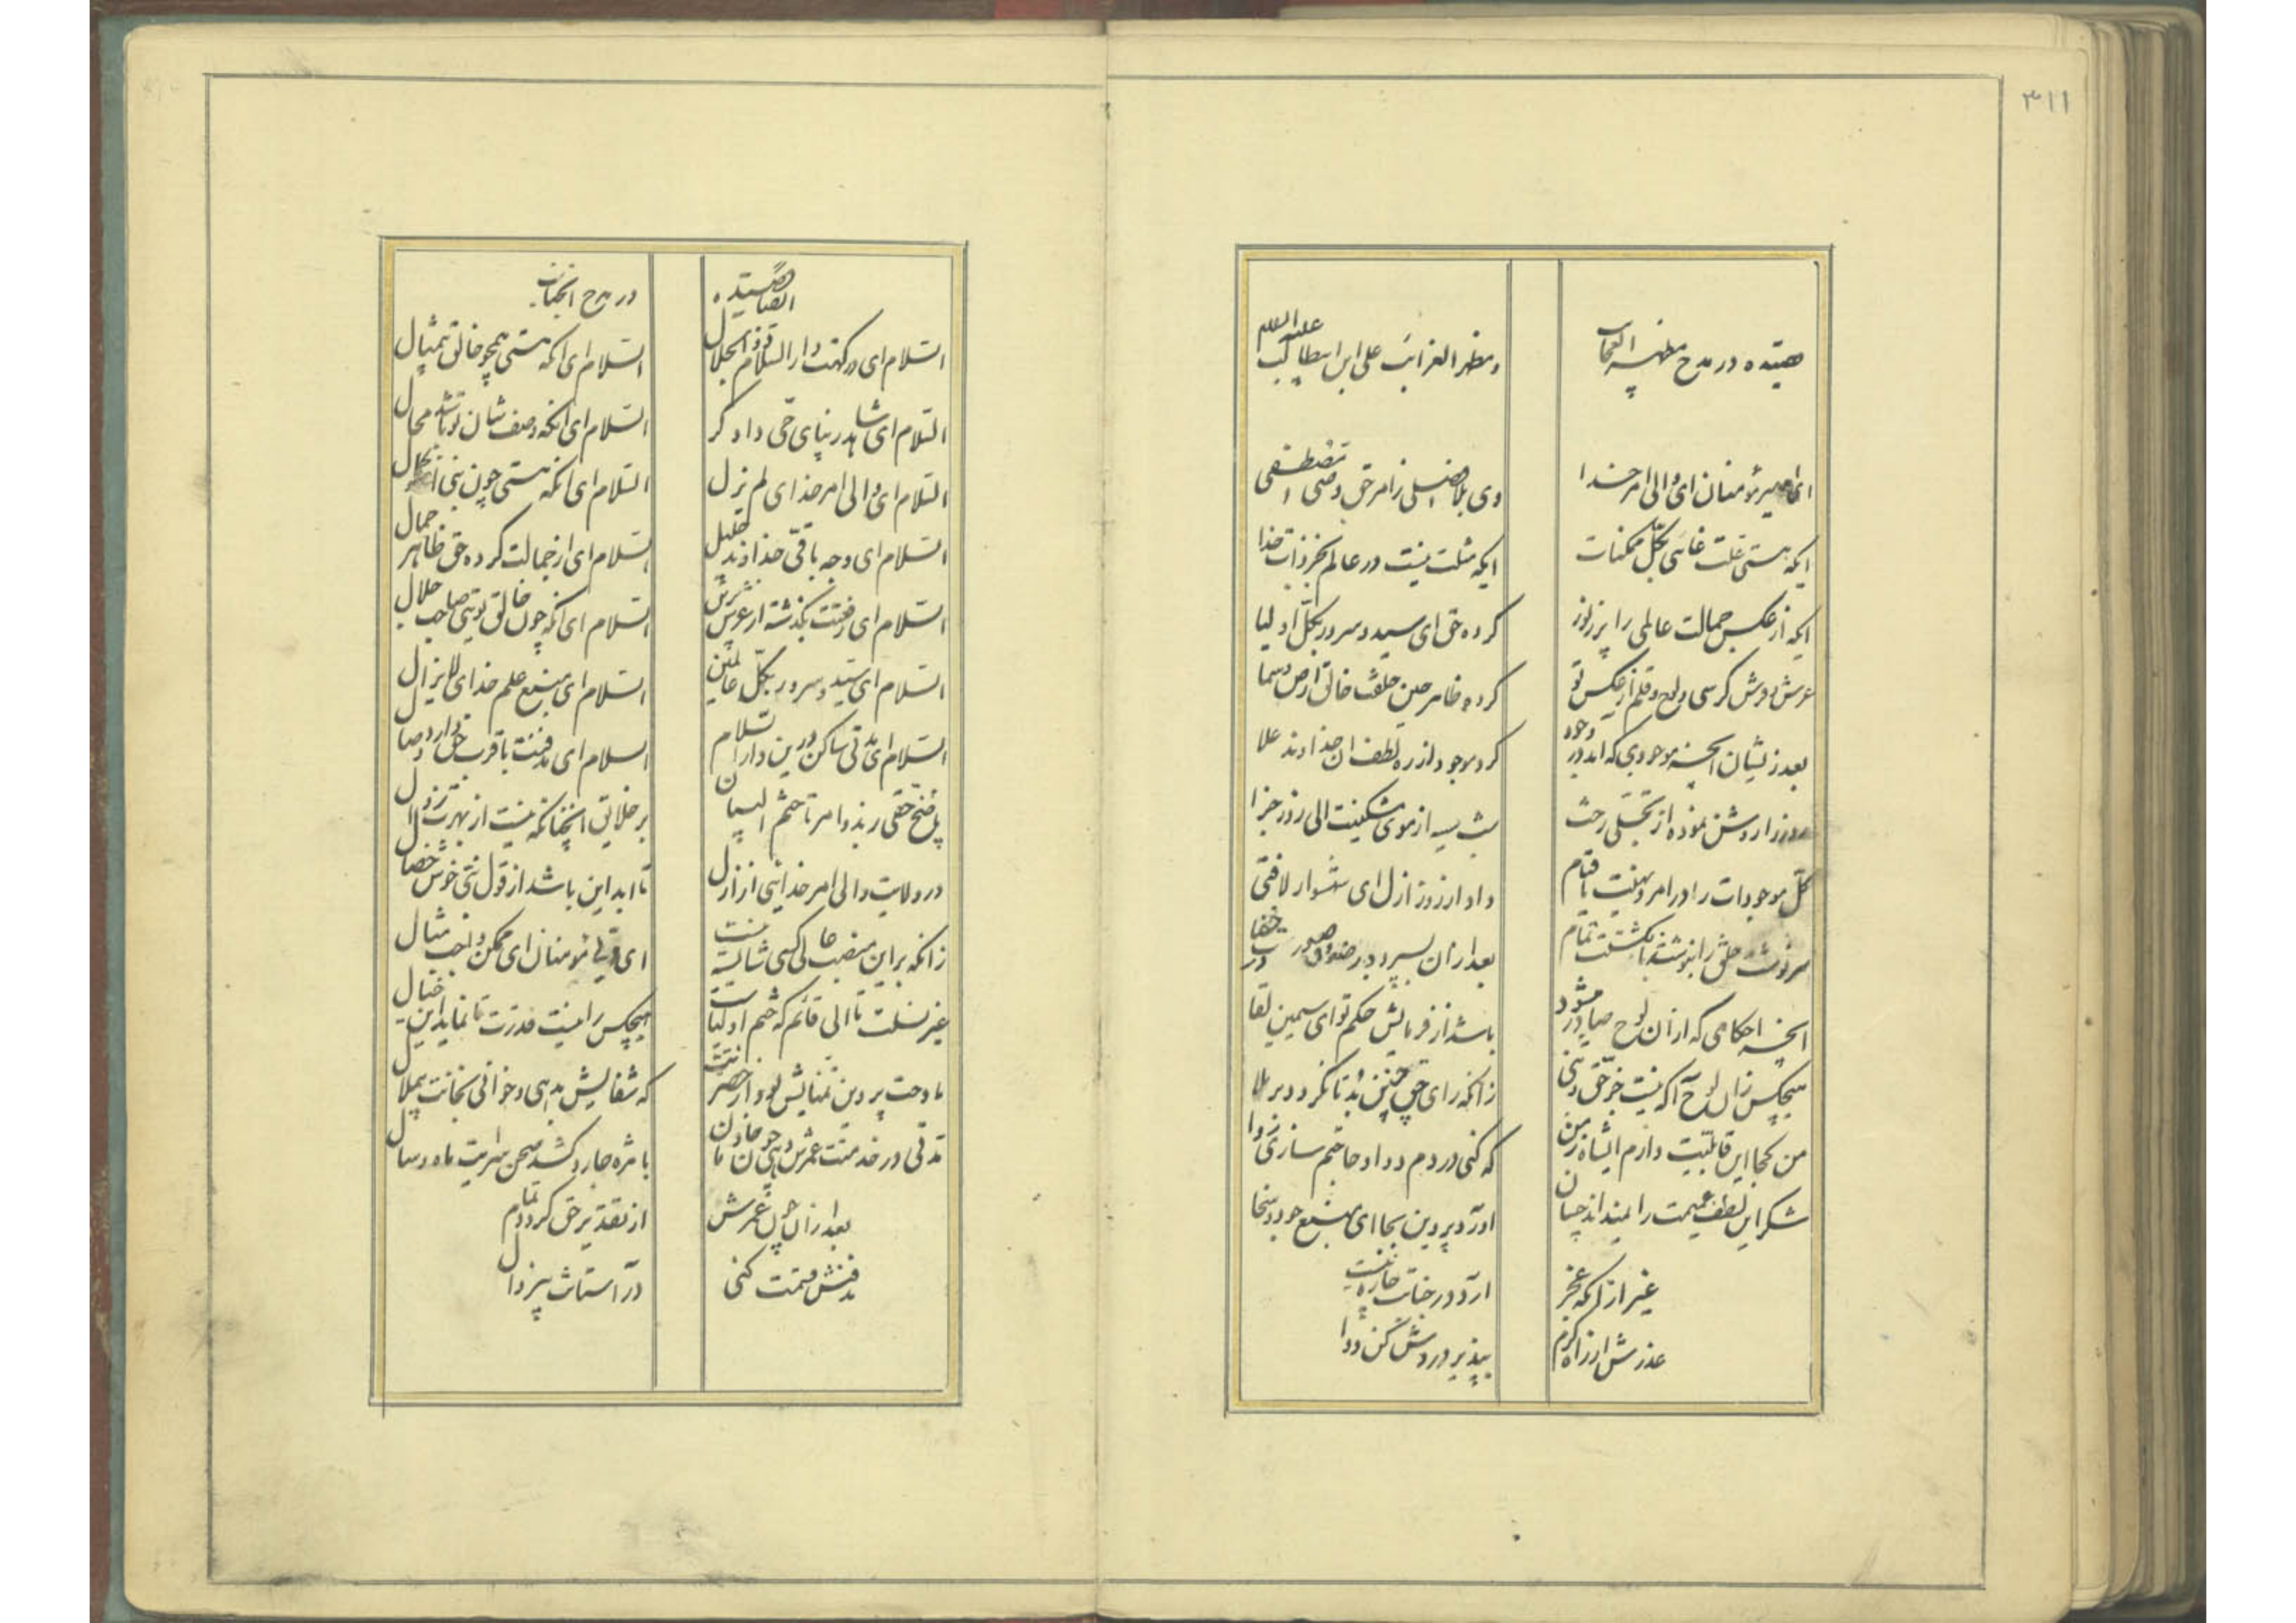 ۳۱۱
قصیده در مدح مظهر العجائب
و مظهر الغرائب علی ابن ابیطالب علیه السلام
ای امیر مؤمنان ای والی امر خدا
وی بلا فصلی ز امر حق وصی مصطفی
ایکه هستی علت غائی بکل ممکنات
ایکه مثلت نیست در عالم بجز ذات خدا
ایکه از عکس جمالت عالمی را پر ز نور
کرده حق ای سید و سرور بکل اولیا
عرش و فرش کرسی و لوح و قلم از عکس تو
کرده ظاهر حین خلقت خالق ارض و سما
بعد زیشان آنچه موجودی که آید در وجود
کرد موجود از ره لطف آن خداوند علا
روز را روشن نموده از تجلی رخت
شب سیه از موی مشکینت الی روز جزا
کل موجودات را در امر و نهیت با قیام
داد از روز ازل ای شهسوار لافتی
سرنوشت خلق را بنوشته انگشتت تمام
بعد از آن بسپرد در خفا
آنچه احکامی که از آن لوح صادر میشود
باشد از فرمایش حکم تو ای سیمین لقا
هیچکس زان لوح آگه نیست جز حق و نبی
زانکه رای حق چنین بد تا نگردد بر ملا
من کجا این قابلیت دارم ایشاه زمن
که کنی دردم دوا و حاجتم سازی روا
شکر این لطف عمیمت را نمیداند چسان
آورد پروین بجا ای منبع جود و سخا
غیر از آنکه عجز
آرد در جنابت چاره نیست
عذرش از راه کرم
بپذیر و دردش کن دوا
ایضا قصیده
در مدح آنجناب
السلام ای درگهت دار السلام ذو الجلال
السلام ای آنکه هستی همچو خالق بیمثال
السلام ای شاهد بینای حی دادگر
السلام ای آنکه وصف شان تو باشد محال
السلام ای والی امر خدای لم یزل
السلام ای آنکه هستی چون نبی
السلام ای وجه باقی خداوند جلیل
السلام ای از جمالت کرده حق ظاهر جمال
السلام ای رفعتت بگذشته از عرش برین
السلام ای آنکه چون خالق توئی صاحب جلال
السلام ای سید و سرور بکل عالمین
السلام ای منبع علم خدای لایزال
السلام ای مدتی ساکن درین دار السلام
السلام ای مدفنت با قرب حق دارد وصال
بر خلایق آنچنانکه نیست از بهرت زوال
در ولایت والی امر خدائی از ازل
تا ابد این باشد از قول نبی خوش خصال
زانکه بر این منصب عالی کسی شایسته نیست
ای ولی مؤمنان ای ممکن واجب مثال
غیر نسلت تا الی قائم که ختم اولیاست
هیچکس را نیست قدرت تا نماید این خیال
مادحت پروین تمنایش بود از حضرتت
که شفایش بدهی و خوانی بخانت بی ملال
مدتی در خدمتت عمرش دهی چون خادمان
با مژه جاروکشد صحن سرایت ماه و سال
بعد از آن چون عمرش
از تقدیر حق گردد تمام
مدفنش قسمت کنی
در آستانت بیزوال